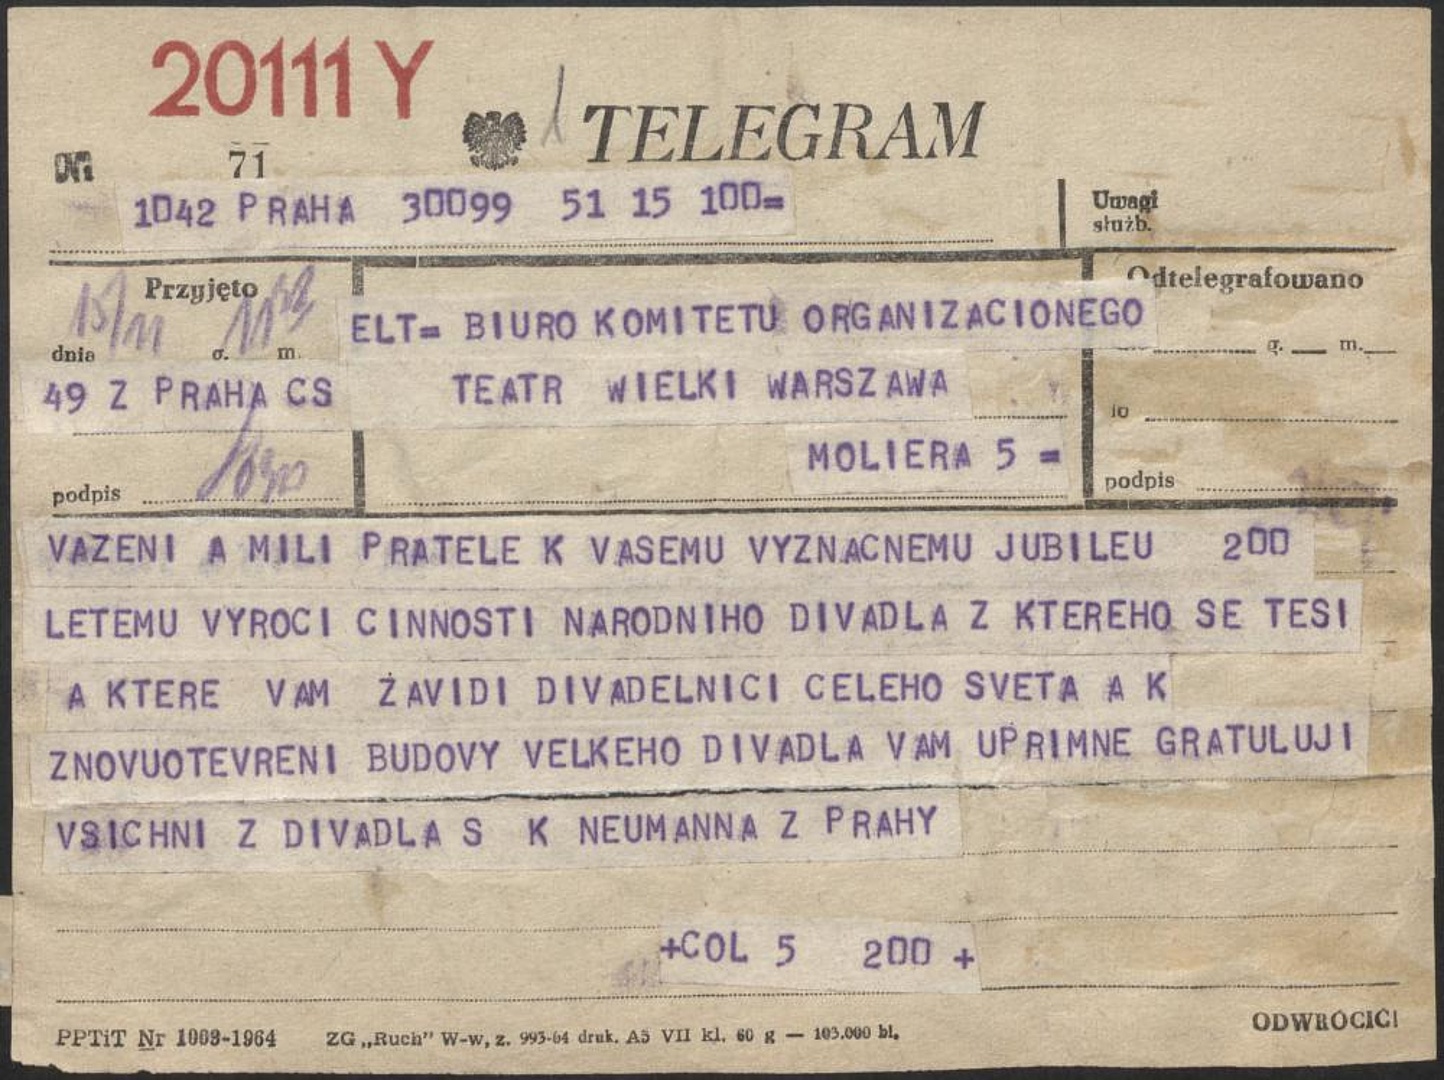 20111 Y
71
TELEGRAM
1042 PRAHA 30099 51 15 100=
Uwagi
służb.
Przyjęto
15/11 11
dnia g. m.
Odtelegrafowano
g. m.
ELT= BIURO KOMITETU ORGANIZACIONEGO
49 Z PRAHA CS
TEATR WIELKI WARSZAWA
MOLIERA 5 =
do
podpis
podpis
VAZENI A MILI PRATELE K VASEMU VYZNACNEMU JUBILEU 200
LETEMU VYROCI CINNOSTI NARODNIHO DIVADLA Z KTEREHO SE TESI
A KTERE VAM ZAVIDI DIVADELNICI CELEHO SVETA A K
ZNOVUOTEVRENI BUDOVY VELKEHO DIVADLA VAM UPRIMNE GRATULUJI
VSICHNI Z DIVADLA S K NEUMANNA Z PRAHY
+COL 5 200 +
PPTiT Nr 1003-1964 ZG „Ruch” W-w, z. 993-64 druk. A5 VII kl. 60 g — 103.000 bl.
ODWRÓCIĆ!